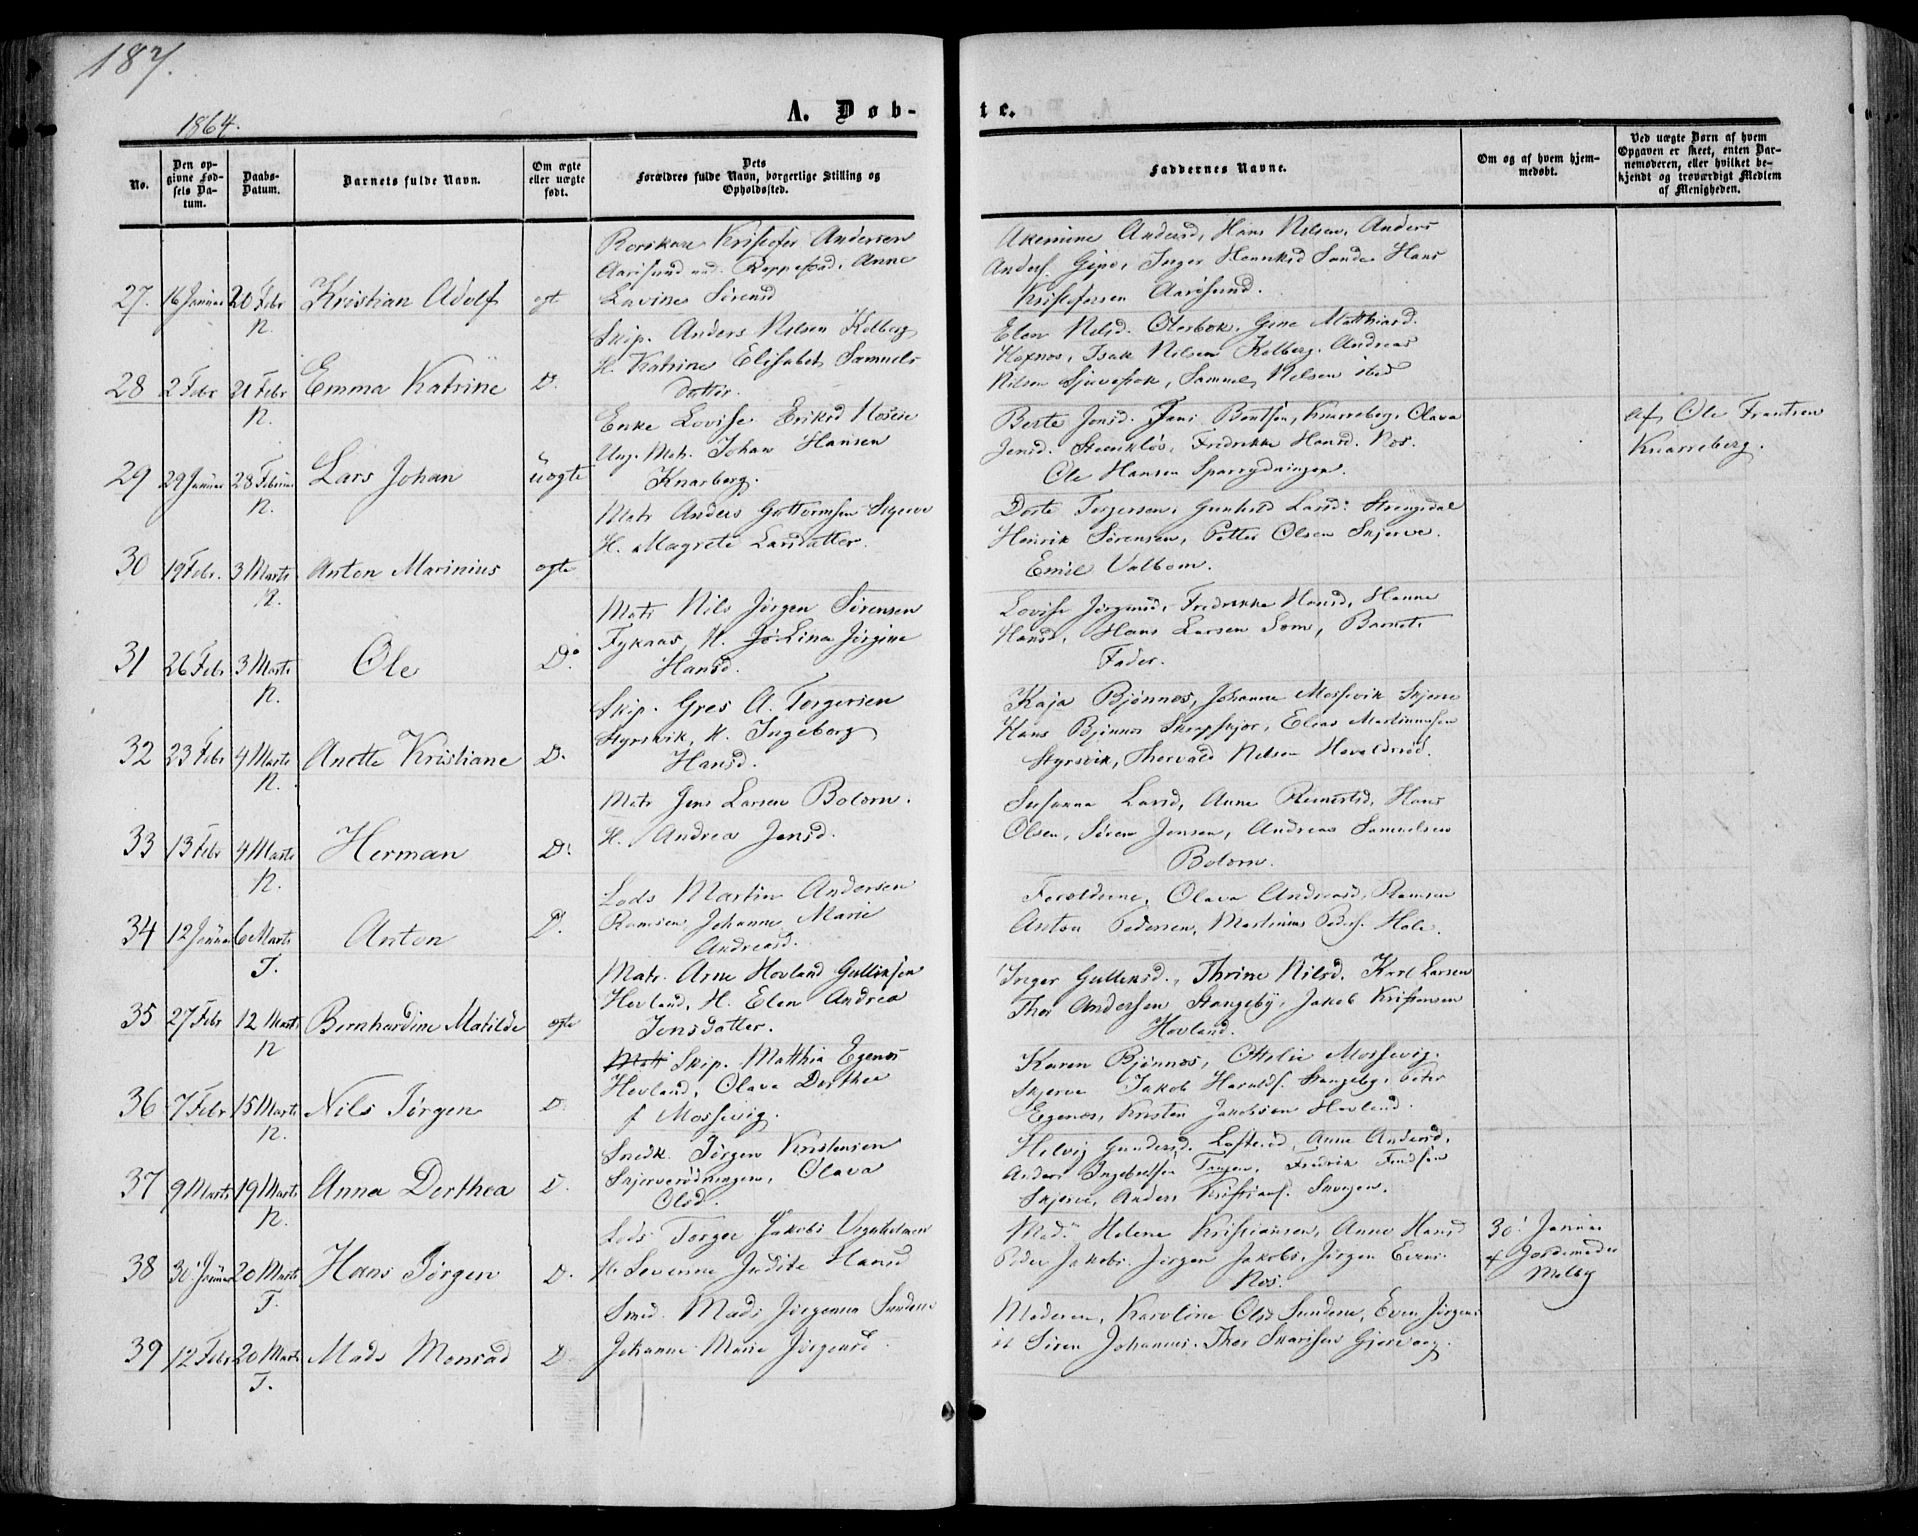 187.
1864.
A. Døb-
te.
No.
Den op-
givne Fød-
sels Da-
tum.
Daabs-
Datum.
Barnets fulde Navn.
Om ægte
eller uægte
født.
Dets
Forældres fulde Navn, borgerlige Stilling og
Opholdssted.
Faddernes Navne.
Om og af hvem hjem-
medøbt.
Ved uægte Børn af hvem
Opgaven er skeet, enten Bar-
nemoderen, eller hvilket be-
kjendt og troværdigt Medlem
af Menigheden.
27. 16 Januar 20 Febr N. Kristian Adolf ægt
Kristofer Andersen
Aarøsund Anne
Lavine Sørensd
Andersd, Hans Nilsen, Anders
Anders. Gipø, Inger Hans
Kristofersen Aarøsund.
28 2 Febr 21 Febr N. Emma Katrine D.
Skip. Anders Nilsen Kolberg
H. Katrine Elisabet Samuels
datter.
Elen Nilsd. Oterbæk, Gine Matthiasd.
Isak Nilsen Kolberg. Andreas
Nilsen Samuel Nilsen ibid
29 29 Januar 28 Februar N. Lars Johan üægte
Enke Lovise Eriksd
Ung. Matr. Johan Hansen
Knarberg.
Berte Jensd. Jens Bentsen, Knarreberg, Olava
Jensd. Fredrikke Hansd. Nøs.
Ole Hansen
Af Ole Frantsen
Knarreberg.
30 19 Febr. 3 Marts N. Anton Marinius ægte
Matr Anders Guttormsen Skjerve
H. Magrete Larsdatter.
Dorte Torgersen, Gunhild Larsd:
Henrik Sørensen, Petter Olsen Skjerve.
Emil Valbom.
31 26 Febr 3 Marts N. Ole Do
Matr Nils Jørgen Sørensen
H. Lina Jørgine
Hansd.
Lovise Jørgensd, Fredrikke Hansd, Hanne
Hansd, Hans Larsen Sem, Barnets
Fader.
32 23 Febr 4 Marts N. Anette Kristiane D.
Skip. Gres A. Torgersen
Styrsvik, H. Ingeborg
Hansd.
Kaja Bjønnes, Johanne Mossevik Skjerve
Hans Bjønnes Elias Martinussen
Styrsvik, Thorvald Nilsen
33 13 Febr 4 Marts N. Herman D.
Matr Jens Larsen Bolærn.
H. Andrea Jensd.
Susanna Larsd, Anne Hans
Olsen, Søren Jensen, Andreas Samuelsen
Bolærn.
34 12 Januar 6 Marts T. Anton D.
Lods Martin Andersen
Ramsøen Johanne Marie
Andreasd.
Forældrene, Olava Andreasd, Ramsøen
Anton Pedersen, Martinius Peders. Hole.
35 27 Febr 12 Marts N Bernhardine Matilde ægte
Matr. Arne Hovland Gulliksen
Hovland, H. Elen Andrea
Jensdatter.
Inger Gulliksd., Thrine Nilsd. Karl Larsen
Thor Andersen Stangeby, Jakob Kristensen
Hovland.
36 7 Febr 15 Marts N. Nils Jørgen D.
Matr Skip. Matthia Egenes
Hovland, Olava Dorthea
f Mossevig
Karen Bjønnes, Ottilie Mossevig.
Skjerve Jakob Haralds. Stangeby, Peter
Egenes, Kristen Jakobsen Hovland.
37 9 Marts 19 Marts N. Anna Dorthea D.
Snedk. Jørgen Kristensen
Skjerverødningen, Olava
Olsd.
Helvig Gundersd. Anne Andersd.
Anders Ingebretsen Fredrik
Skjerve, Anders Kristians. Skogen.
38 30 Januar 20 Marts T. Hans Jørgen D.
Lods Torger Jakobs
H. Sevenne Judite Hansd
Mad. Helene Kristiansen, Anne Hansd
Peder Jakobs. Jørgen Jakobs, Jørgen
Nøs.
30' Januar
af Jordemoder
Melby
39 12 Febr 20 Marts T. Mads Monsad D.
Smed. Mads Jørgensen Sundene
Johanne Marie Jørgensd
Moderen, Karoline Olsd Sundene, Even Jørgens.
Søren Johannes. Thor